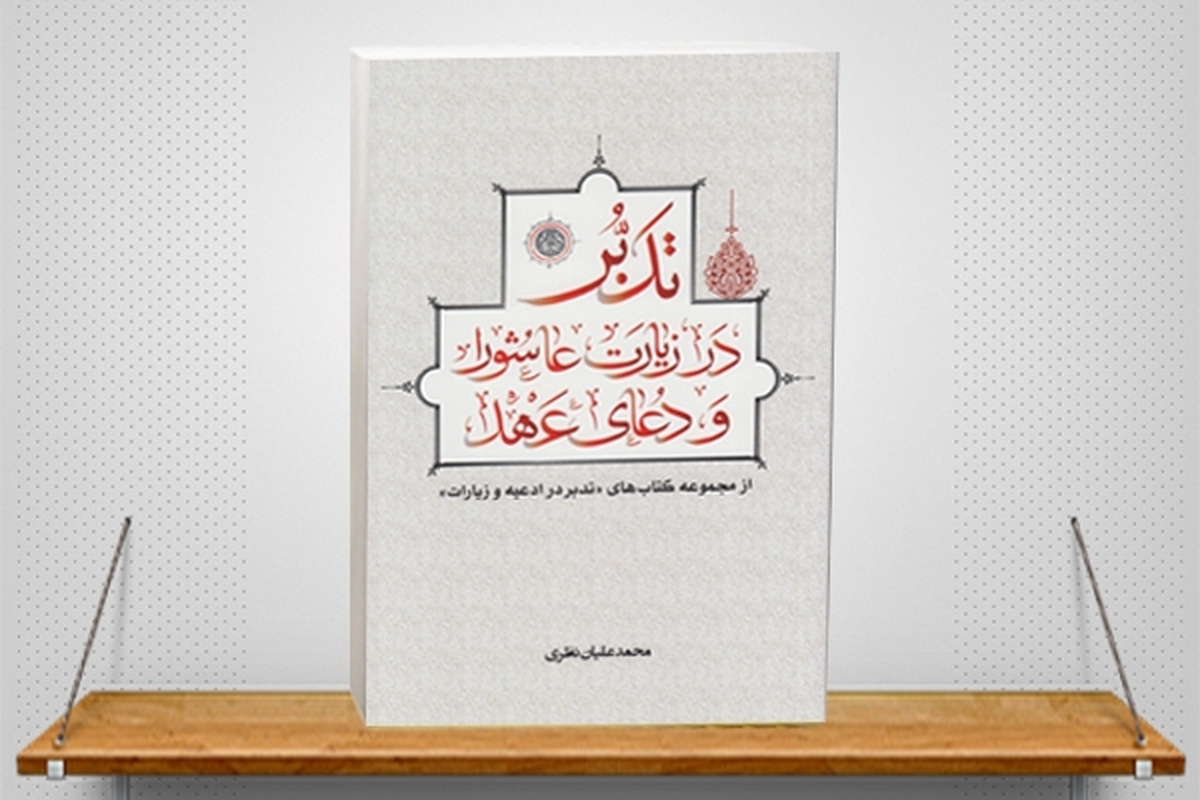 تدبُّر
دَر زیارَت عاشُورا
وَ دُعای عَهْد
از مجموعه کتاب‌های «تدبر در ادعیه و زیارات»
محمد علیان نظری